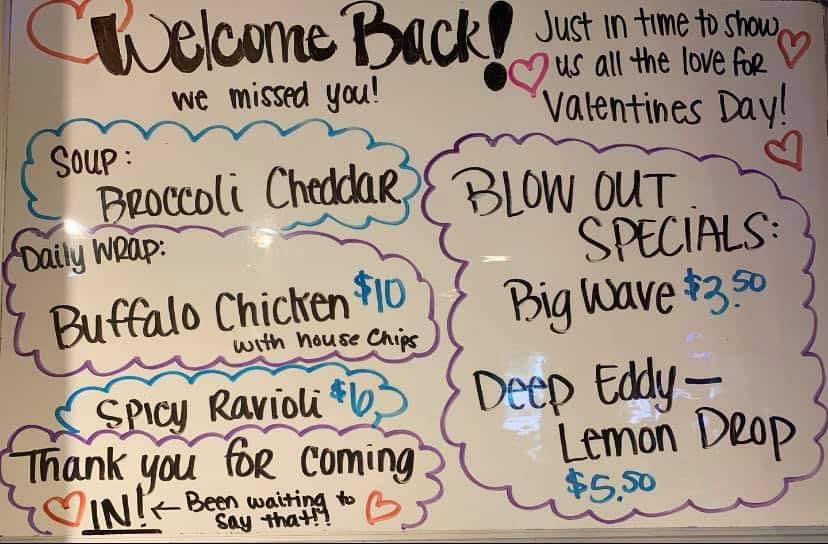 Welcome Back!
we missed you!
Just in time to show
us all the love for
Valentines Day!
Soup:
Broccoli Cheddar
Daily Wrap:
Buffalo Chicken $10
with house chips
Spicy Ravioli $6
Thank you for coming
IN! ← Been waiting to
say that!!
BLOW OUT
SPECIALS:
Big Wave $3.50
Deep Eddy —
Lemon Drop
$5.50